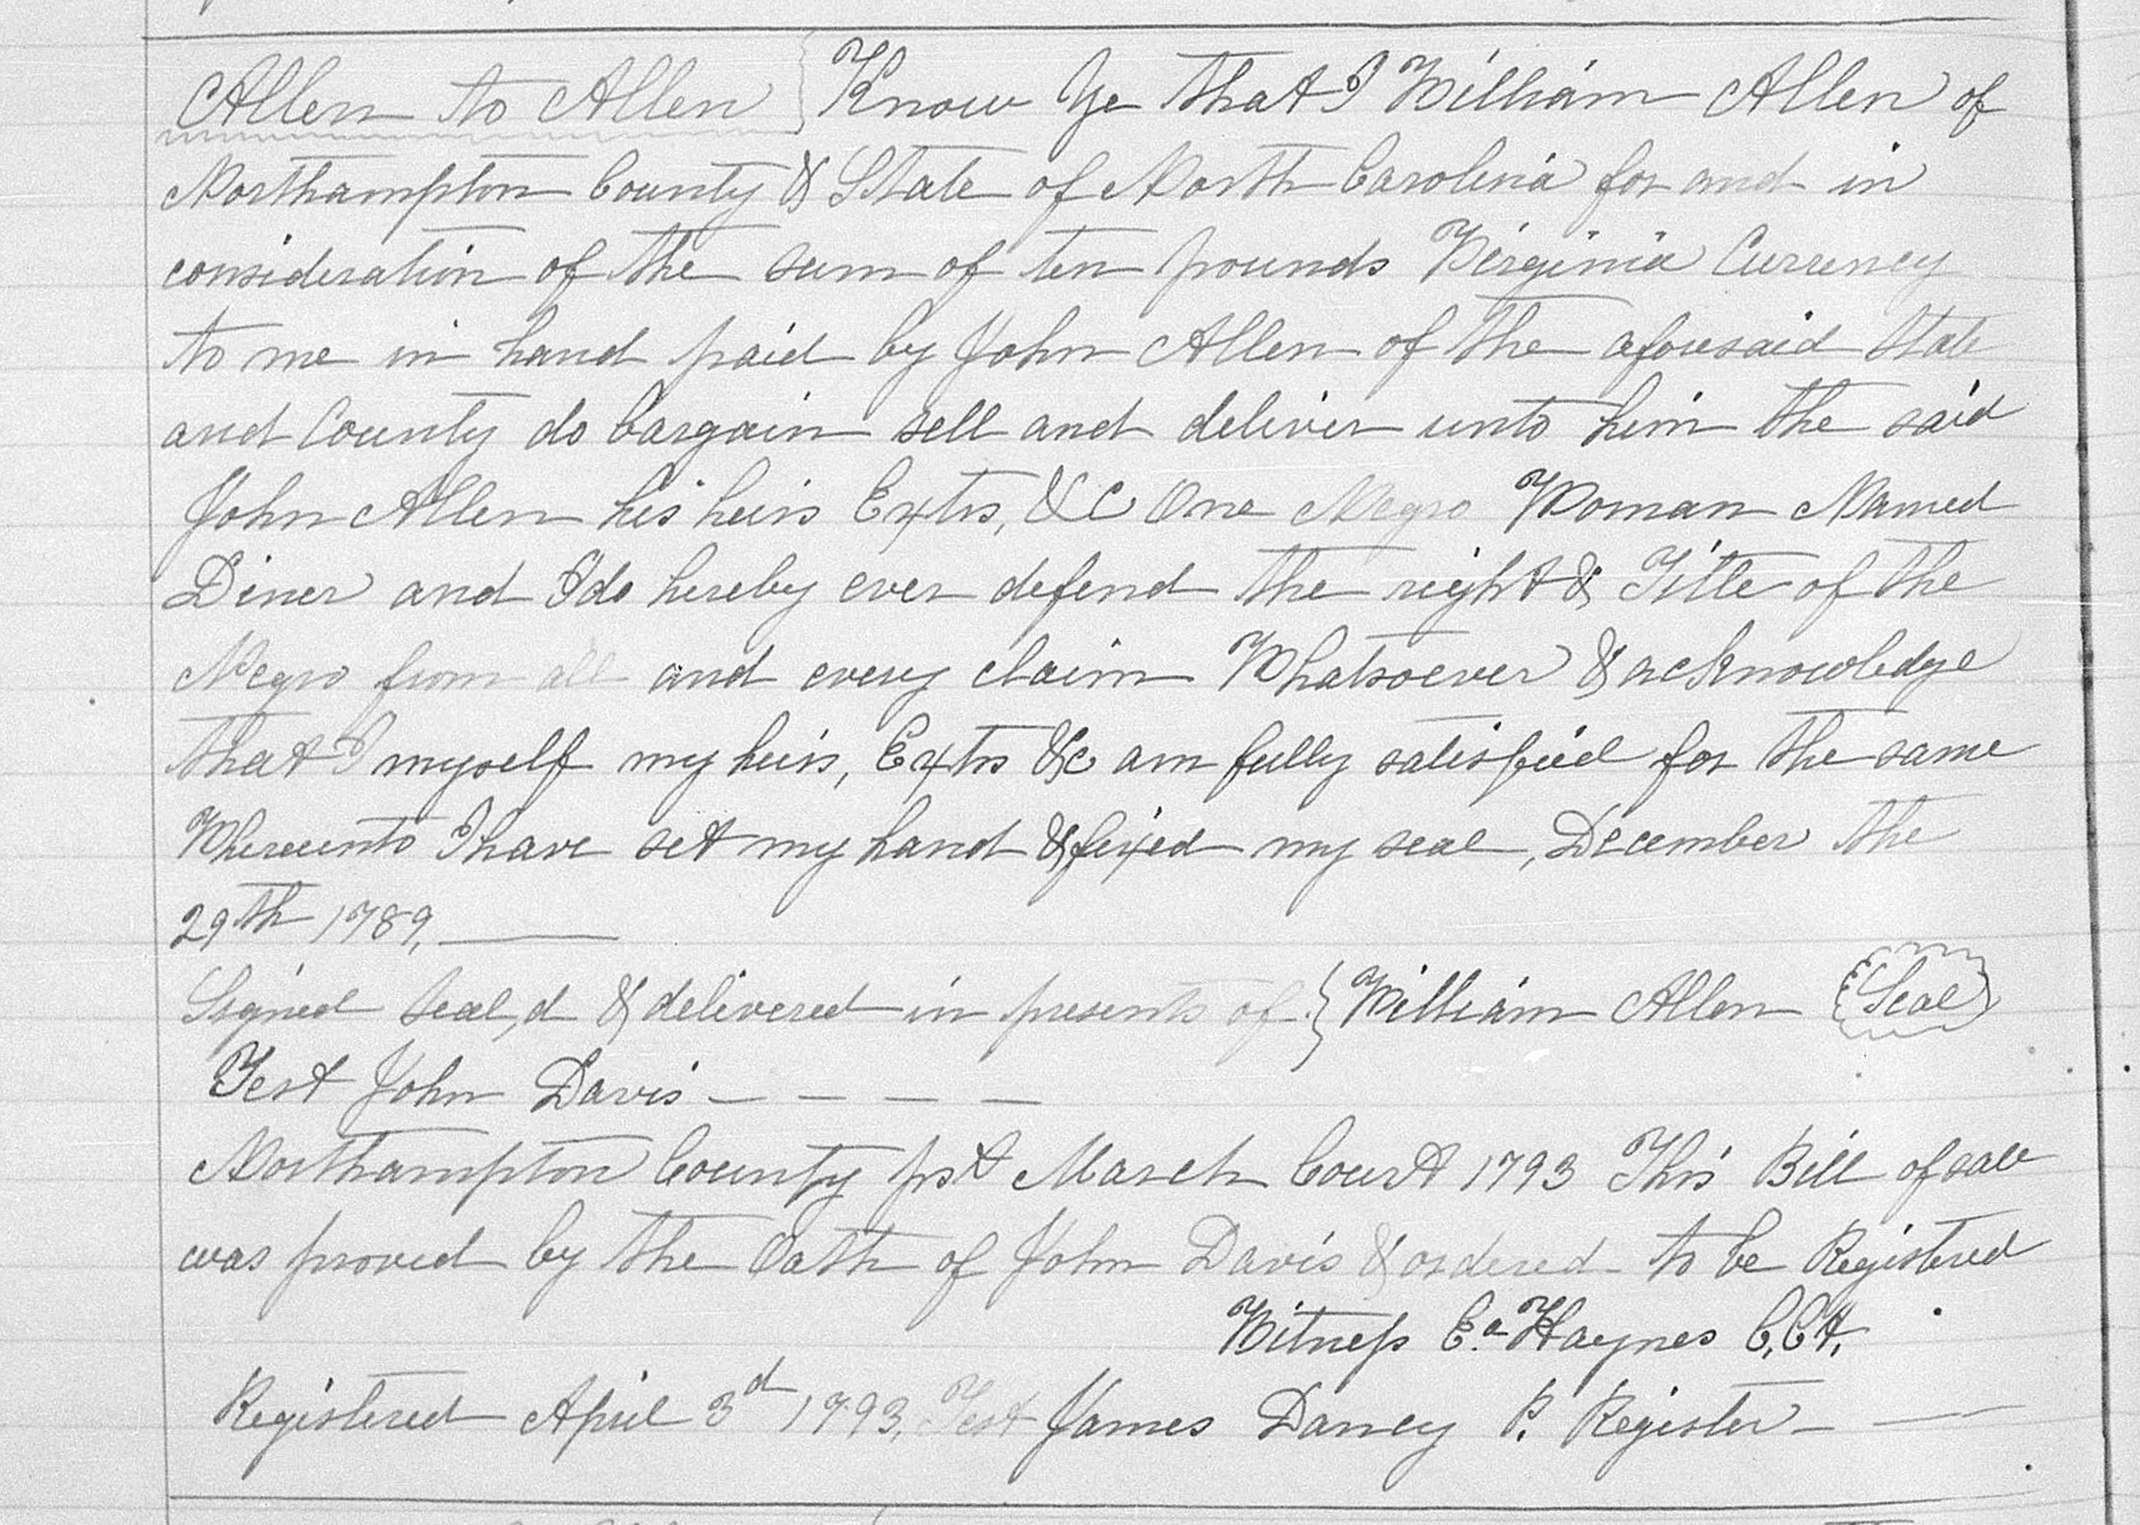 Allen to Allen } Know Ye that I William Allen of
Northampton County & State of North Carolina for and in
consideration of the sum of ten pounds Virginia Currency
to me in hand paid by John Allen of the aforesaid State
and County do bargain sell and deliver unto him the said
John Allen his heirs Extrs, &C One Negro Woman Named
Diner and I do hereby ever defend the right & Title of the
Negro from all and every claim Whatsoever & acknowledge
that I myself my heirs, Extrs &c am fully satisfied for the same
Whereunto I have set my hand & fixed my seal, December the
29th 1789,
Signed Seal,d & delivered in presents of } William Allen Seal
Test John Davis
Northampton County Sst March Court 1793 This Bill of sale
was proved by the Oath of John Davis & ordered to be Registered
Witness Ea. Haynes C,Ct,
Registered April 3d 1793, Test James Dancy P. Register